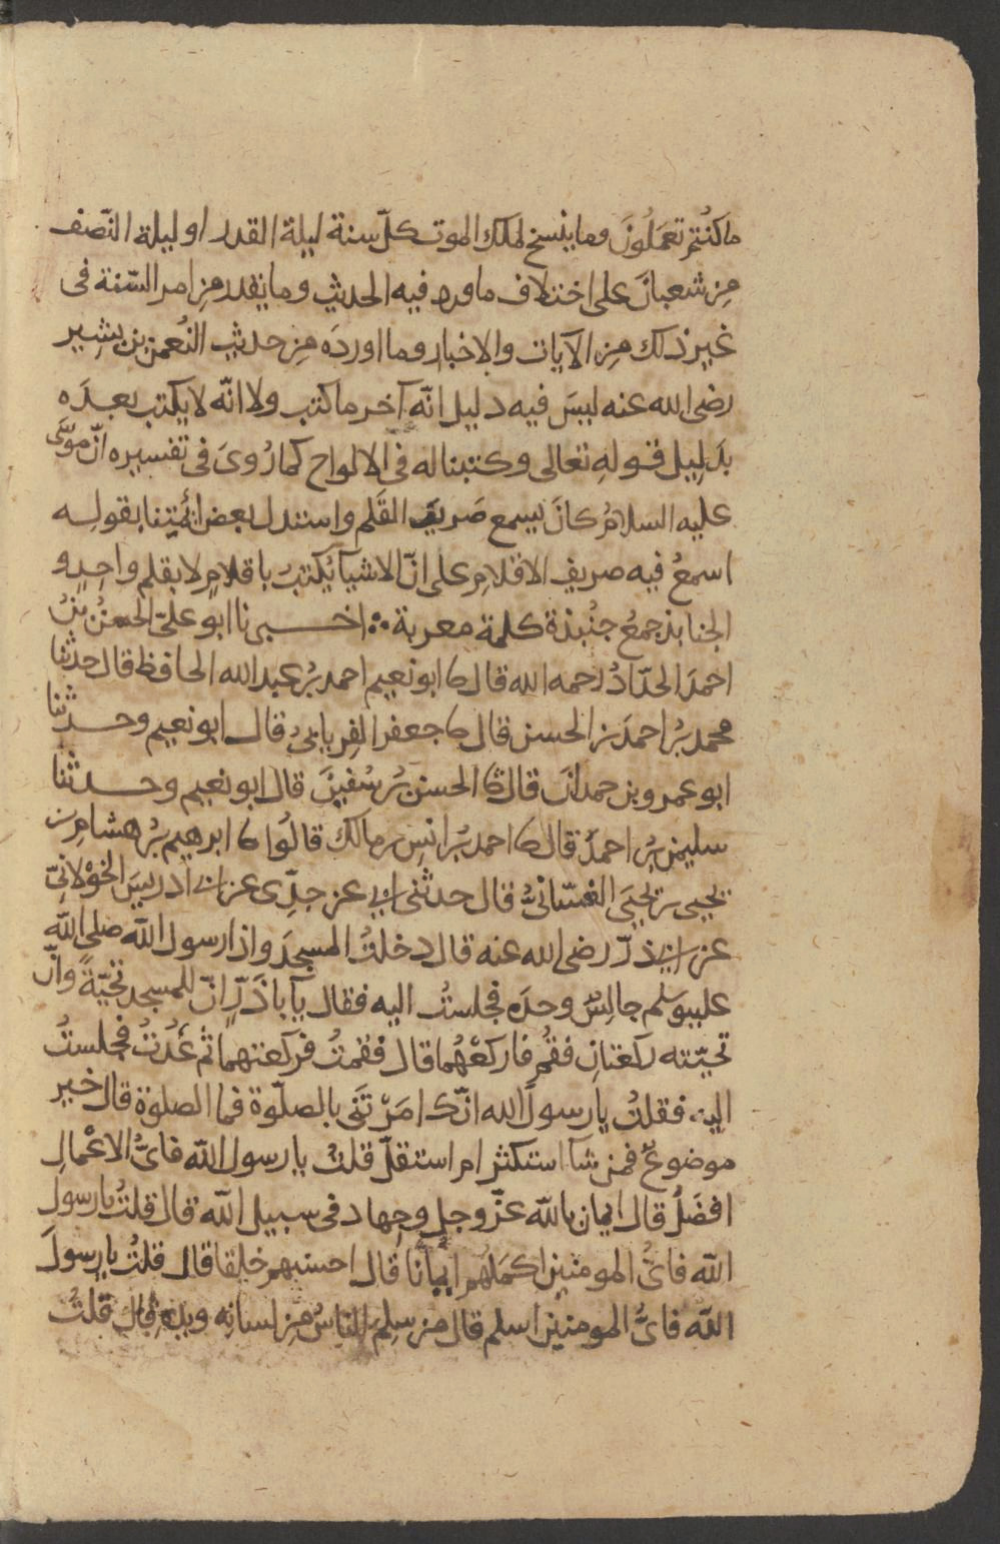 ما كنتُم تعمَلُونَ وما ينسخ لملك الموت كلّ سنة ليلة القدر او ليلة النّصف
مِن شعبانَ على اختلاف ما ورد فيه الحديث وما يقدر مِن امر السّنة فى
غير ذلك مِن الآيات والاخبار وما اوردَه مِن حديث النُعمن بن بشير
رضى الله عنه ليسَ فيه دليل انّه آخر ما كتب ولا انّه لا يكتب بعدَه
بدَلِيل قوله تعالى وكتبنا له فى الالواح كما رُوىَ فى تفسيره انّ موسَى
عليه السلامُ كانَ يسمع صَريف القَلم واستدل بعض ائمّتنا بقوله
اسمعُ فيه صريف الاقلامِ على انّ الاشيآ يُكتبُ باقلامٍ لا بقلم واحدٍ و
الجنابذ جمعُ جنُبذة كلمة معربة ∴ اخبرنا ابو علىّ الحسنُ بنُ
احمدَ الحدّادُ رحمه الله قال ثنا ابو نعيم احمد بنُ عبد الله الحافظ قال حدثنا
محمد بنُ احمدَ بن الحسن قال ثنا جعفر الفِريابىُّ قال ابو نعيم وحدثنا
ابو عمرو بن حمدانَ قال ثنا الحسن بنُ سُفينَ قال ابو نعيم وحدثنا
سليمن بنُ احمدَ قال ثنا احمد بنُ انس بن مالك قالُوا ثنا ابرهيم بنُ هشام بن
يحيى بن يحيَى الغسّانىُّ قال حدثنى ابى عن جدّى عن ابى ادريسَ الخوْلانىّ
عن ابى ذرّ رضى الله عنه قال دخلتُ المسجدَ واذا رسول الله صلى الله
عليه وسلم جالِسٌ وحدَه فجلستُ اليه فقال يآ باذَرٍّ انّ للمسجد تحيّةً وانّ
تحيّته ركعتانِ فقُم فاركعْهُما قال فقمتُ فركعتهما ثم عُدْتُ فجلستُ
اليه فقلتُ يا رسولَ الله انّك امَرْتَنى بالصلوة فما الصلوة قال خير
موضوعٌ فمن شآ استكثر ام استقلّ قلتُ يا رسول الله فاىُّ الاعْمالِ
افضَلُ قال ايمان بالله عزّ وجل وجهاد فى سبيل الله قال قلتُ يا رسول
الله فاىُّ المومنين اكمَلُهم ايمانًا قال احسنهم خلقا قال قلتُ يا رسولَ
الله فاىُّ المومنين اسلم قال من سلِمَ الناسُ مِن لسانِه ويدِهِ قال قلتُ